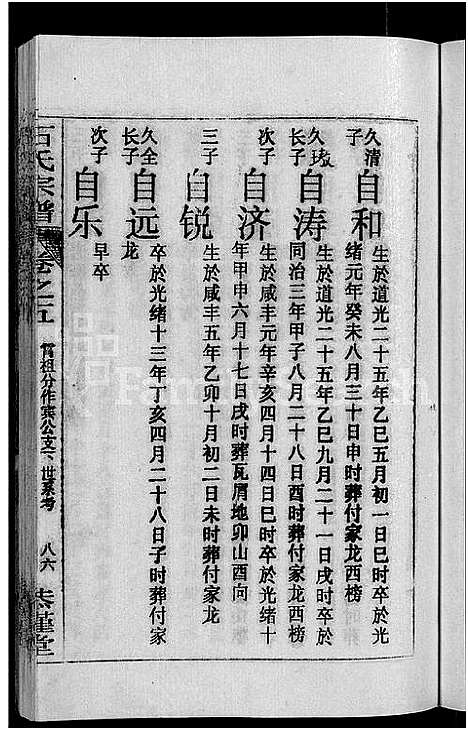 久清子
自和
生於道光二十五年乙巳五月初一日巳时卒於光
绪元年癸未八月三十日申时葬付家龙西榜
久璈长子
自涛
生於道光二十五年乙巳九月二十一日戌时卒於
同治三年甲子八月二十八日酉时葬付家龙西榜
次子
自济
生於咸丰元年辛亥四月十四日巳时卒於光绪十
年甲申六月十七日戌时葬瓦屑地卯山酉向
三子
自锐
生於咸丰五年乙卯十月初二日未时葬付家龙
久全长子
自远
卒於光绪十三年丁亥四月二十八日子时葬付家
龙
次子
自乐
早卒
石氏宗谱
卷之五
祖分作宾公支下世系考
八六
恭谨堂